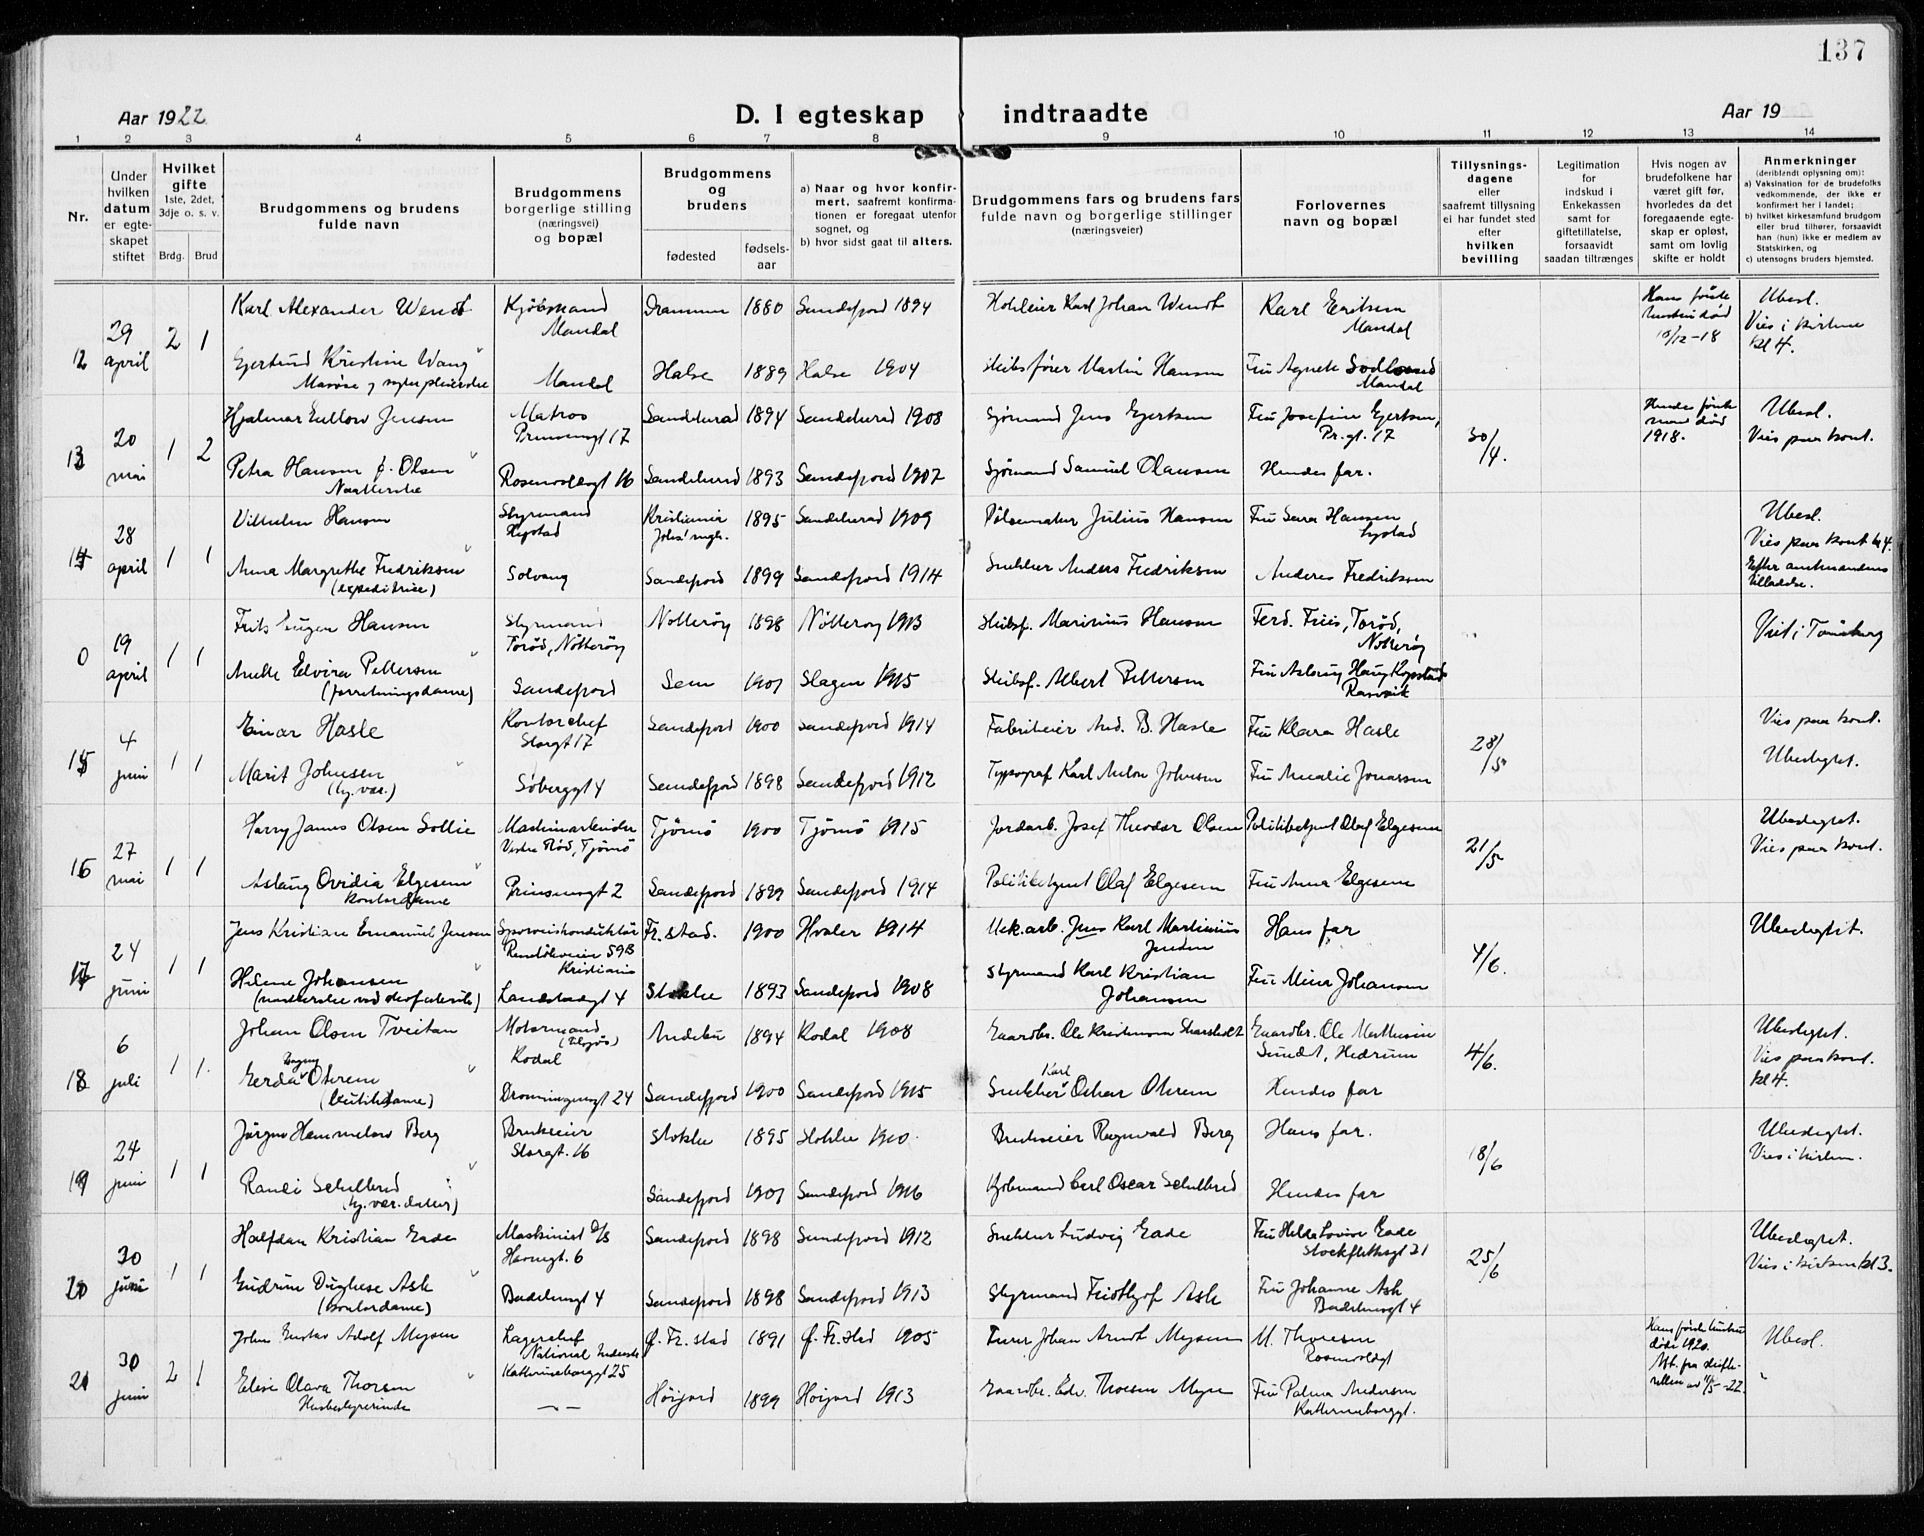 137
Aar 1922
D. I egteskap indtraadte
Aar 19
1 2 3 4 5 6 7 8 9 10 11 12 13 14
Nr.
Under
hvilken
datum
er egte-
skapet
stiftet
Hvilket
gifte
1ste, 2det,
3dje o. s. v.
Brdg. Brud
Brudgommens og brudens
fulde navn
Brudgommens
borgerlige stilling
(næringsvei)
og bopæl
Brudgommens
og
brudens
fødested
fødsels-
aar
a) Naar og hvor konfir-
mert, saafremt konfirma-
tionen er foregaat utenfor
sognet, og
b) hvor sidst gaat til alters.
Brudgommens fars og brudens fars
fulde navn og borgerlige stillinger
(næringsveier)
Forlovernes
navn og bopæl
Tillysnings-
dagene
eller
saafremt tillysning
ei har fundet sted
efter
hvilken
bevilling
Legitimation
for
indskud i
Enkekassen
samt for
giftetillatelse,
forsaavidt
saadan tiltrænges
Hvis nogen av
brudefolkene har
været gift før,
hvorledes da det
foregaaende egte-
skap er opløst,
samt om lovlig
skifte er holdt
Anmerkninger
(deriblandt oplysning om):
a) Vaksination for de brudefolks
vedkommende, der ikke er
konfirmert her i landet;
b) hvilket kirkesamfund brudgom
eller brud tilhører, forsaavidt
han (hun) ikke er medlem av
Statskirken, og
c) utensogns bruders hjemsted.
12 29 april 2 1
Karl Alexander Wendt Kjøbmand Mandal Drammen 1880 Sandefjord 1894 Karl Johan Wendt Karl Eriksen Mandal Hans første hustru død 10/12-18 Ubesl. Vies i kirken kl 4.
Gjertrud Kristine Wang Mandal Halse 1889 Halse 1904 Skibsfører Martin Hansen Fru Agnete Mandal
13 20 mai 1 2
Hjalmar Jensen Matros Prinsensgt 17 Sandeherad 1894 Sandeherad 1908 Sjømand Jens Gjertsen Fru Josefine Gjertsen, Pr.gt. 17 30/4. Hendes første mand død 1918. Ubesl. Vies paa kont.
Petra Hansen f. Olsen Rosenvoldsgt 16 Sandeherad 1893 Sandefjord 1907 Sjømand Samuel Olausen Hendes far.
14 28 april 1 1
Vilhelm Hansen Styrmand Kristiania 1895 Sandeherad 1909 Pølsemaker Julius Hansen Fru Sara Hansen Ubesl. Vies paa kont kl 4.
Anna Margrethe Fredriksen (expeditrice) Solvang Sandefjord 1899 Sandefjord 1914 Snekker Anders Fredriksen Anders Fredriksen Efter amtmandens tilladelse.
0 19 april 1 1
Frits Eugen Hansen Styrmand Torød, Nøtterøy Nøtterøy 1898 Nøtterøy 1913 Skibsf. Marinius Hansen Ferd. Friis, Torød, Nøtterøy Viet i Tønsberg
Anette Elvira Pettersen (forretningsdame) Sandefjord Sem 1901 Slagen 1915 Skibsf. Albert Pettersen Fru Aslaug Haug Kopstad Ramvik
15 4 juni 1 1
Einar Hasle Kontorchef Storgt 17 Sandefjord 1900 Sandefjord 1914 Fabrikeier And. B. Hasle Fru Klara Hasle 28/5 Vies paa kont.
Marit Johnsen (hj. vær.) Søberggt 4 Sandefjord 1898 Sandefjord 1912 Typograf Karl Anton Johnsen Fru Amalie Jonassen Ubeslegtet.
16 27 mai 1 1
Harry James Olsen Sollie Maskinarbeider Vestre Rød, Tjømø Tjømø 1900 Tjømø 1915 Jordarb. Josef Theodor Olsen Politibetjent Olaf Elgesem 21/5 Ubeslegtet. Vies paa kont.
Aslaug Ovidia Elgesem kontordame Prinsensgt 2 Sandefjord 1899 Sandefjord 1914 Politibetjent Olaf Elgesem Fru Anna Elgesem
17 24 juni 1 1
Jens Kristian Emanuel Jensen Sporveiskonduktør 59B Kristiania Fr.stad. 1900 Hvaler 1914 Mek.arb. Jens Karl Martinius Jensen Hans far 4/6. Ubeslegtet.
Helene Johansen Landstadsgt 4 Stokke 1893 Sandefjord 1908 Styrmand Karl Kristian Johansen Fru Mina Johansen
18 6 juli 1 1
Johan Olsen Tveitan Motormand Kodal Andebu 1894 Kodal 1908 Gaardbr. Ole Kristensen Gaardbr. Ole Mathisen Sundet, Hedrum 4/6. Ubeslegtet. Vies paa kont. kl 4.
Gerda Dagny Otterem (butikdame) Dronningensgt 24 Sandefjord 1900 Sandefjord 1915 Snekker Karl Oskar Otterem Hendes far
19 24 juni 1 1
Jørgen Hammelow Berg Brukseier Storgt. 16 Stokke 1895 Stokke 1910 Brukseier Ragnvald Berg Hans far. 18/6 Ubeslegtet. Vies i kirken.
Randi Schelbred (hj. vær. datter) Sandefjord 1901 Sandefjord 1916 Kjøbmand Carl Oscar Schelbred Hendes far
20 30 juni 1 1
Halfdan Kristian Gade Maskinist Havnegt. 6 Sandefjord 1898 Sandefjord 1912 Snekker Ludvig Gade Fru Hilda Lovise Gade Stockflethsgt 31 25/6 Ubeslegtet. Vies i kirken kl 3.
Gudrun Ask (kontordame) Badehusgt 4 Sandefjord 1898 Sandefjord 1913 Styrmand Fridthjof Ask Fru Johanne Ask Badehusgt 4
21 30 juni 2 1
John Gustav Adolf Mysen Lagerchef National Industri Kathrineborggt 25 G. Fr.stad 1891 G. Fr.stad 1905 Johan Arndt Mysen M. Thoresen Rosenvoldgt Hans første hustru døde 1920. Att. fra skifte- retten av 11/5-22. Ubesl.
Elise Olava Thorsen Husbestyrerinde Høijord 1899 Høijord 1913 Gaardbr. Edv. Thorsen Myre Fru Palma Andersen Kathrineborggt.